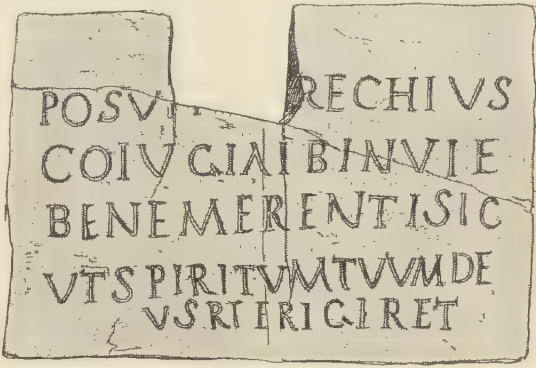 POSV RECHIVS
COIVGIAIBINVIE
BENEMERENTISIC
VTSPIRITVMTVVMDE
VSRTERIGIRET